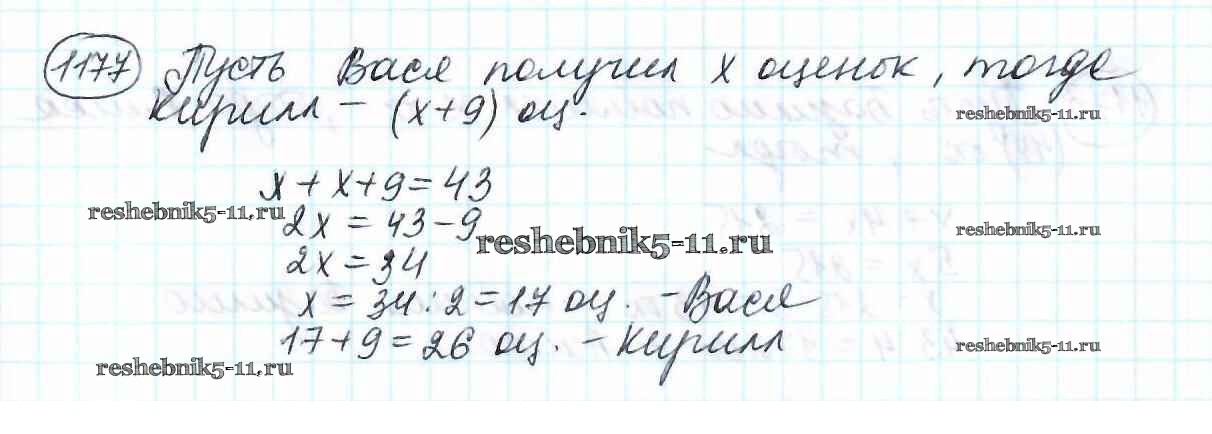 1177 Пусть Вася получил x оценок, тогда
Кирилл – (x+9) оц.
reshebnik5-11.ru
x + x + 9 = 43
reshebnik5-11.ru
2x = 43 – 9
reshebnik5-11.ru
reshebnik5-11.ru
2x = 34
x = 34 : 2 = 17 оц. – Вася
17 + 9 = 26 оц. – Кирилл
reshebnik5-11.ru
reshebnik5-11.ru